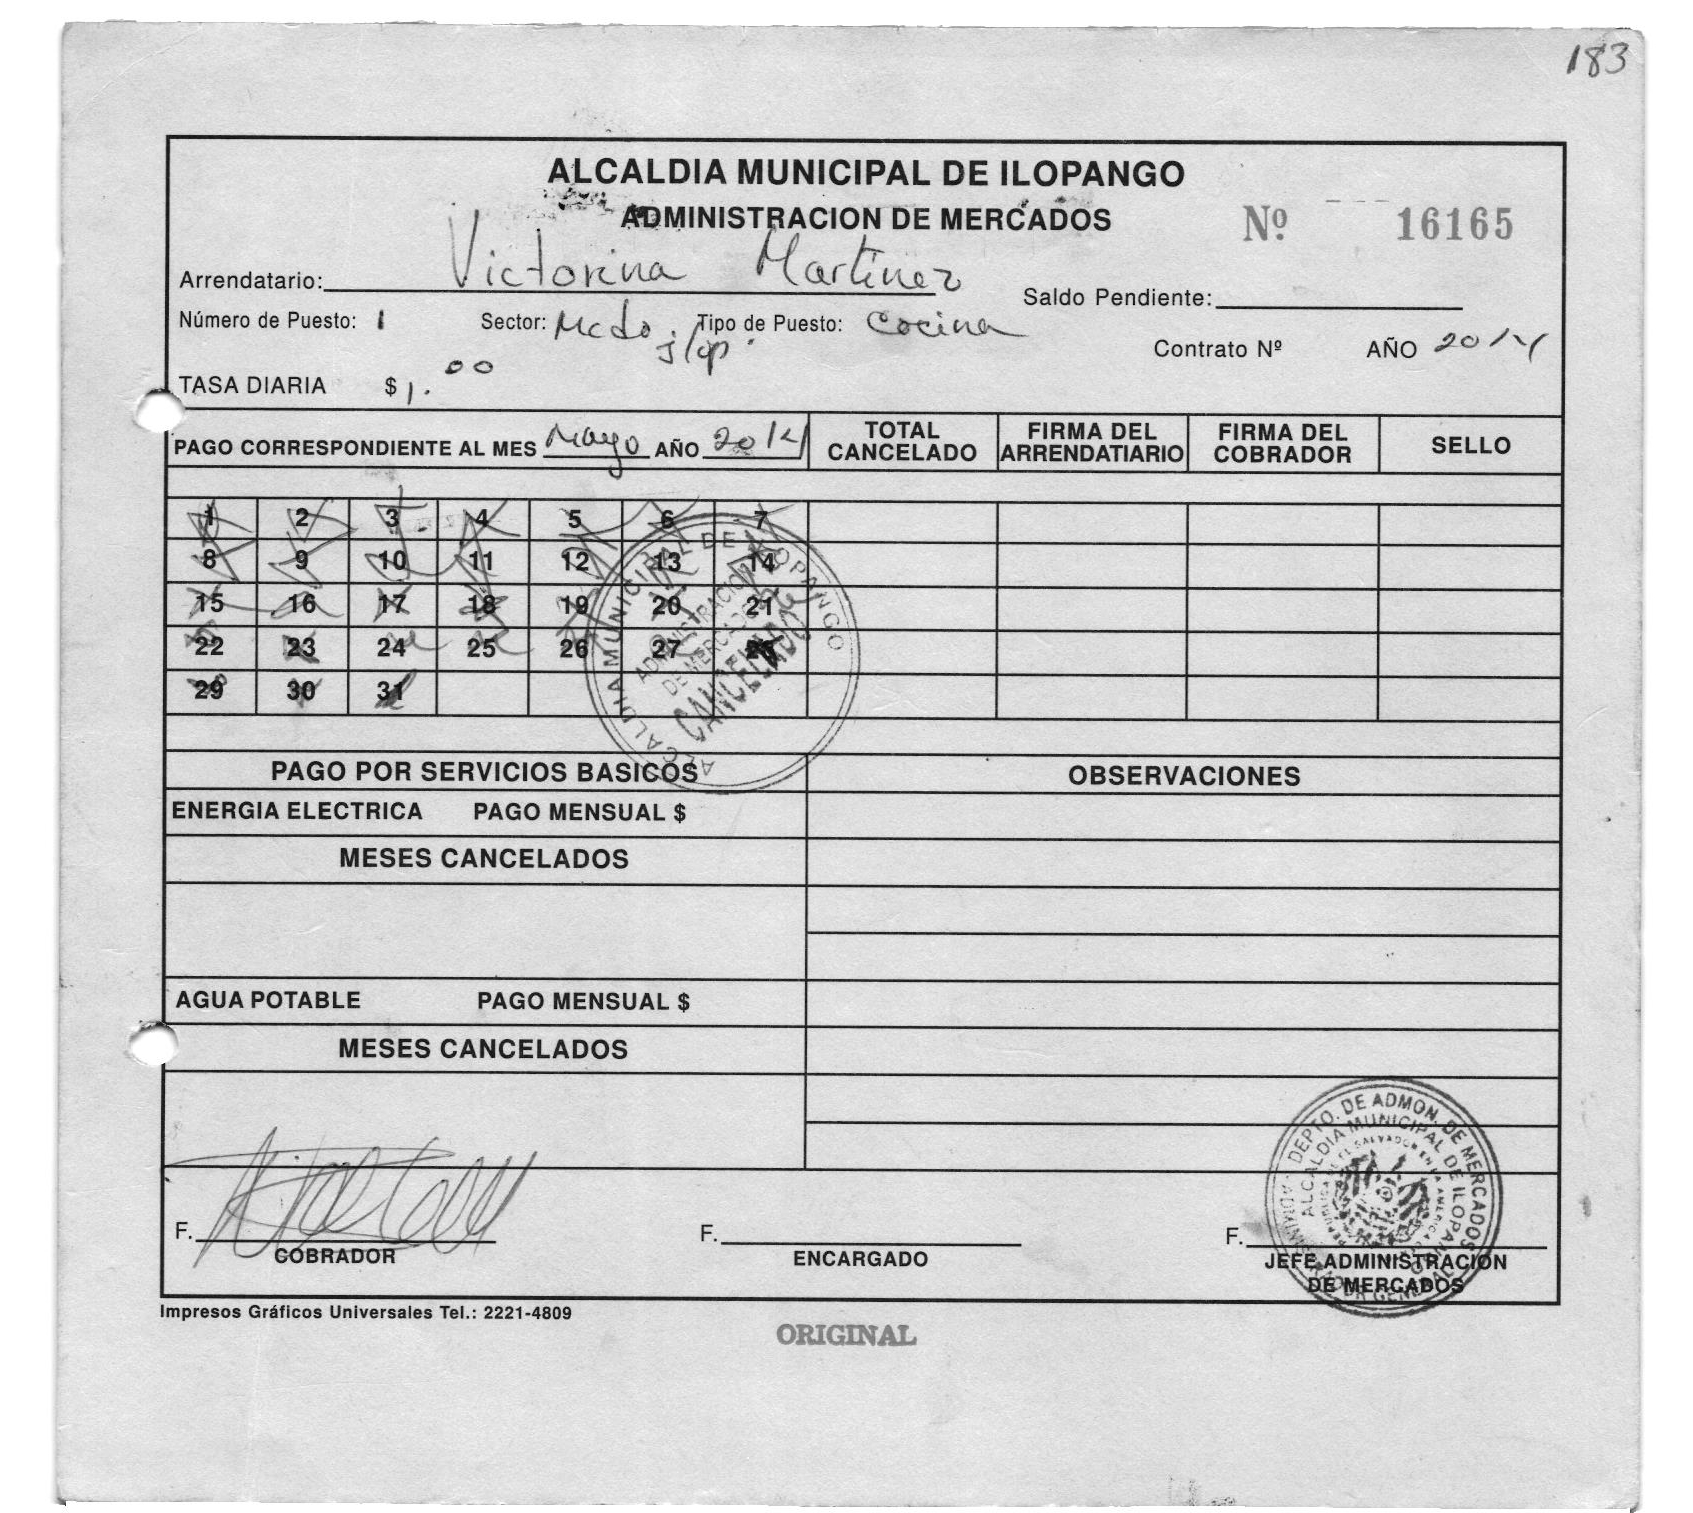 183
ALCALDIA MUNICIPAL DE ILOPANGO
ADMINISTRACION DE MERCADOS
Nº 16165
Arrendatario: Victorina Martinez
Saldo Pendiente:
Número de Puesto: 1 Sector: Mcdo Ilop. Tipo de Puesto: Cocina
Contrato Nº AÑO 2014
TASA DIARIA $ 1.00
PAGO CORRESPONDIENTE AL MES Mayo AÑO 2014
TOTAL CANCELADO
FIRMA DEL ARRENDATIARIO
FIRMA DEL COBRADOR
SELLO
1 2 3 4 5 6 7
8 9 10 11 12 13 14
15 16 17 18 19 20 21
22 23 24 25 26 27 28
29 30 31
ALCALDIA MUNICIPAL DE ILOPANGO
ADMINISTRACION
DE MERCADOS
CANCELADO
PAGO POR SERVICIOS BASICOS
OBSERVACIONES
ENERGIA ELECTRICA PAGO MENSUAL $
MESES CANCELADOS
AGUA POTABLE PAGO MENSUAL $
MESES CANCELADOS
DEPTO. DE ADMON. DE MERCADOS
ALCALDIA MUNICIPAL DE ILOPANGO
REPUBLICA DE EL SALVADOR EN LA AMERICA CENTRAL
ADMINISTRADOR GENERAL
F.
COBRADOR
F.
ENCARGADO
F.
JEFE ADMINISTRACION
DE MERCADOS
Impresos Gráficos Universales Tel.: 2221-4809
ORIGINAL